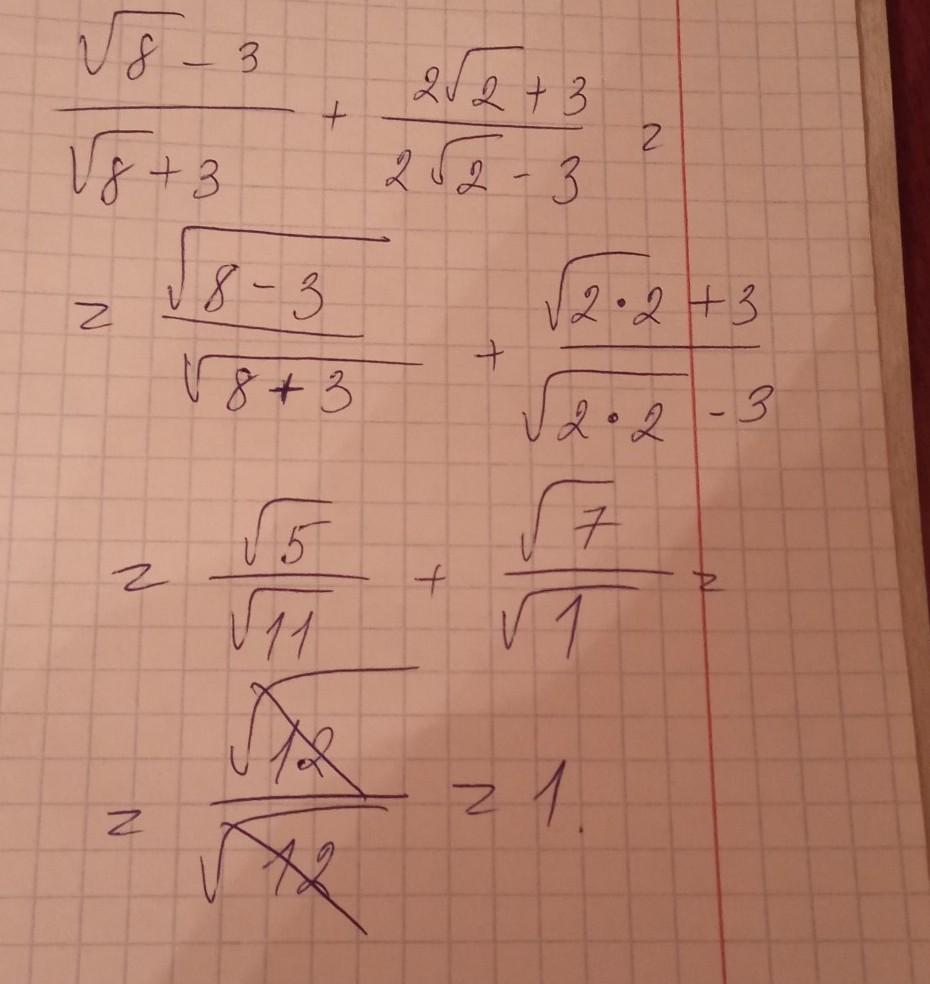 (√8 - 3)/(√8 + 3) + (2√2 + 3)/(2√2 - 3) =
= √(8 - 3)/√(8 + 3) + (√(2·2) + 3)/(√(2·2) - 3)
= √5/√11 + √7/√1 =
= √12/√12 = 1.